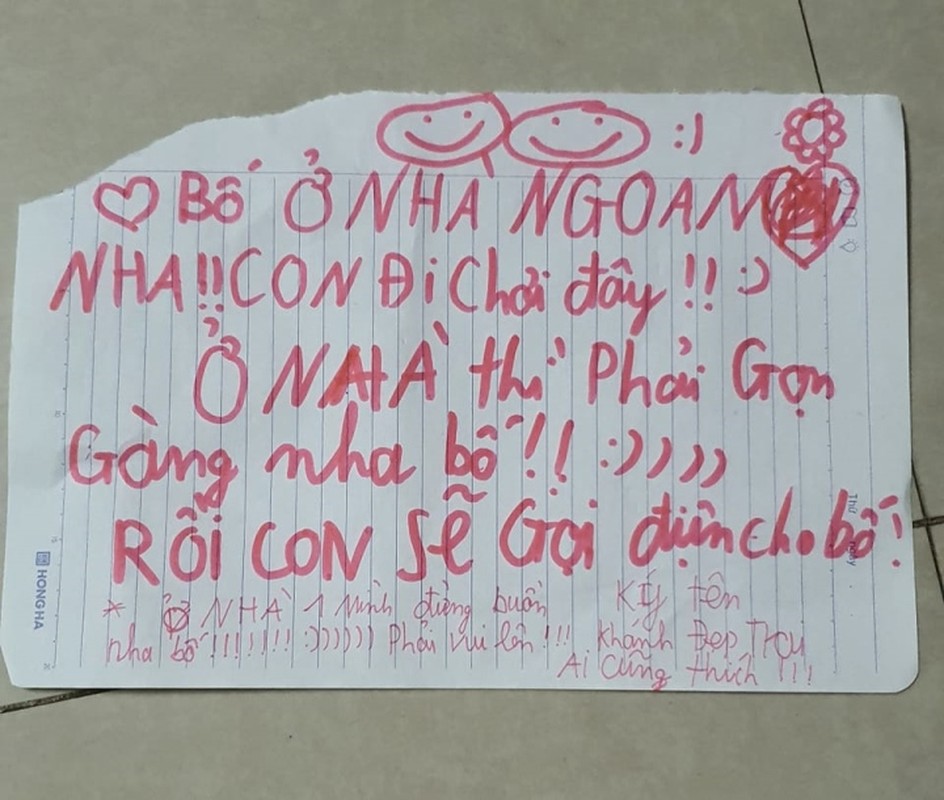 :)
BỐ Ở NHÀ NGOAN
NHA!! CON ĐI Chơi đây !! :)
Ở NHÀ thì Phải Gọn
Gàng nha bố !! :))))
RỒI CON SẼ Gọi điện cho bố!
* Ở NHÀ 1 Mình đừng buồn
nha bố !!!!!!! :)))))) Phải vui lên !!!
Ký tên
Khánh Đẹp Trai
Ai Cũng thích !!!
HONG HA
Thứ